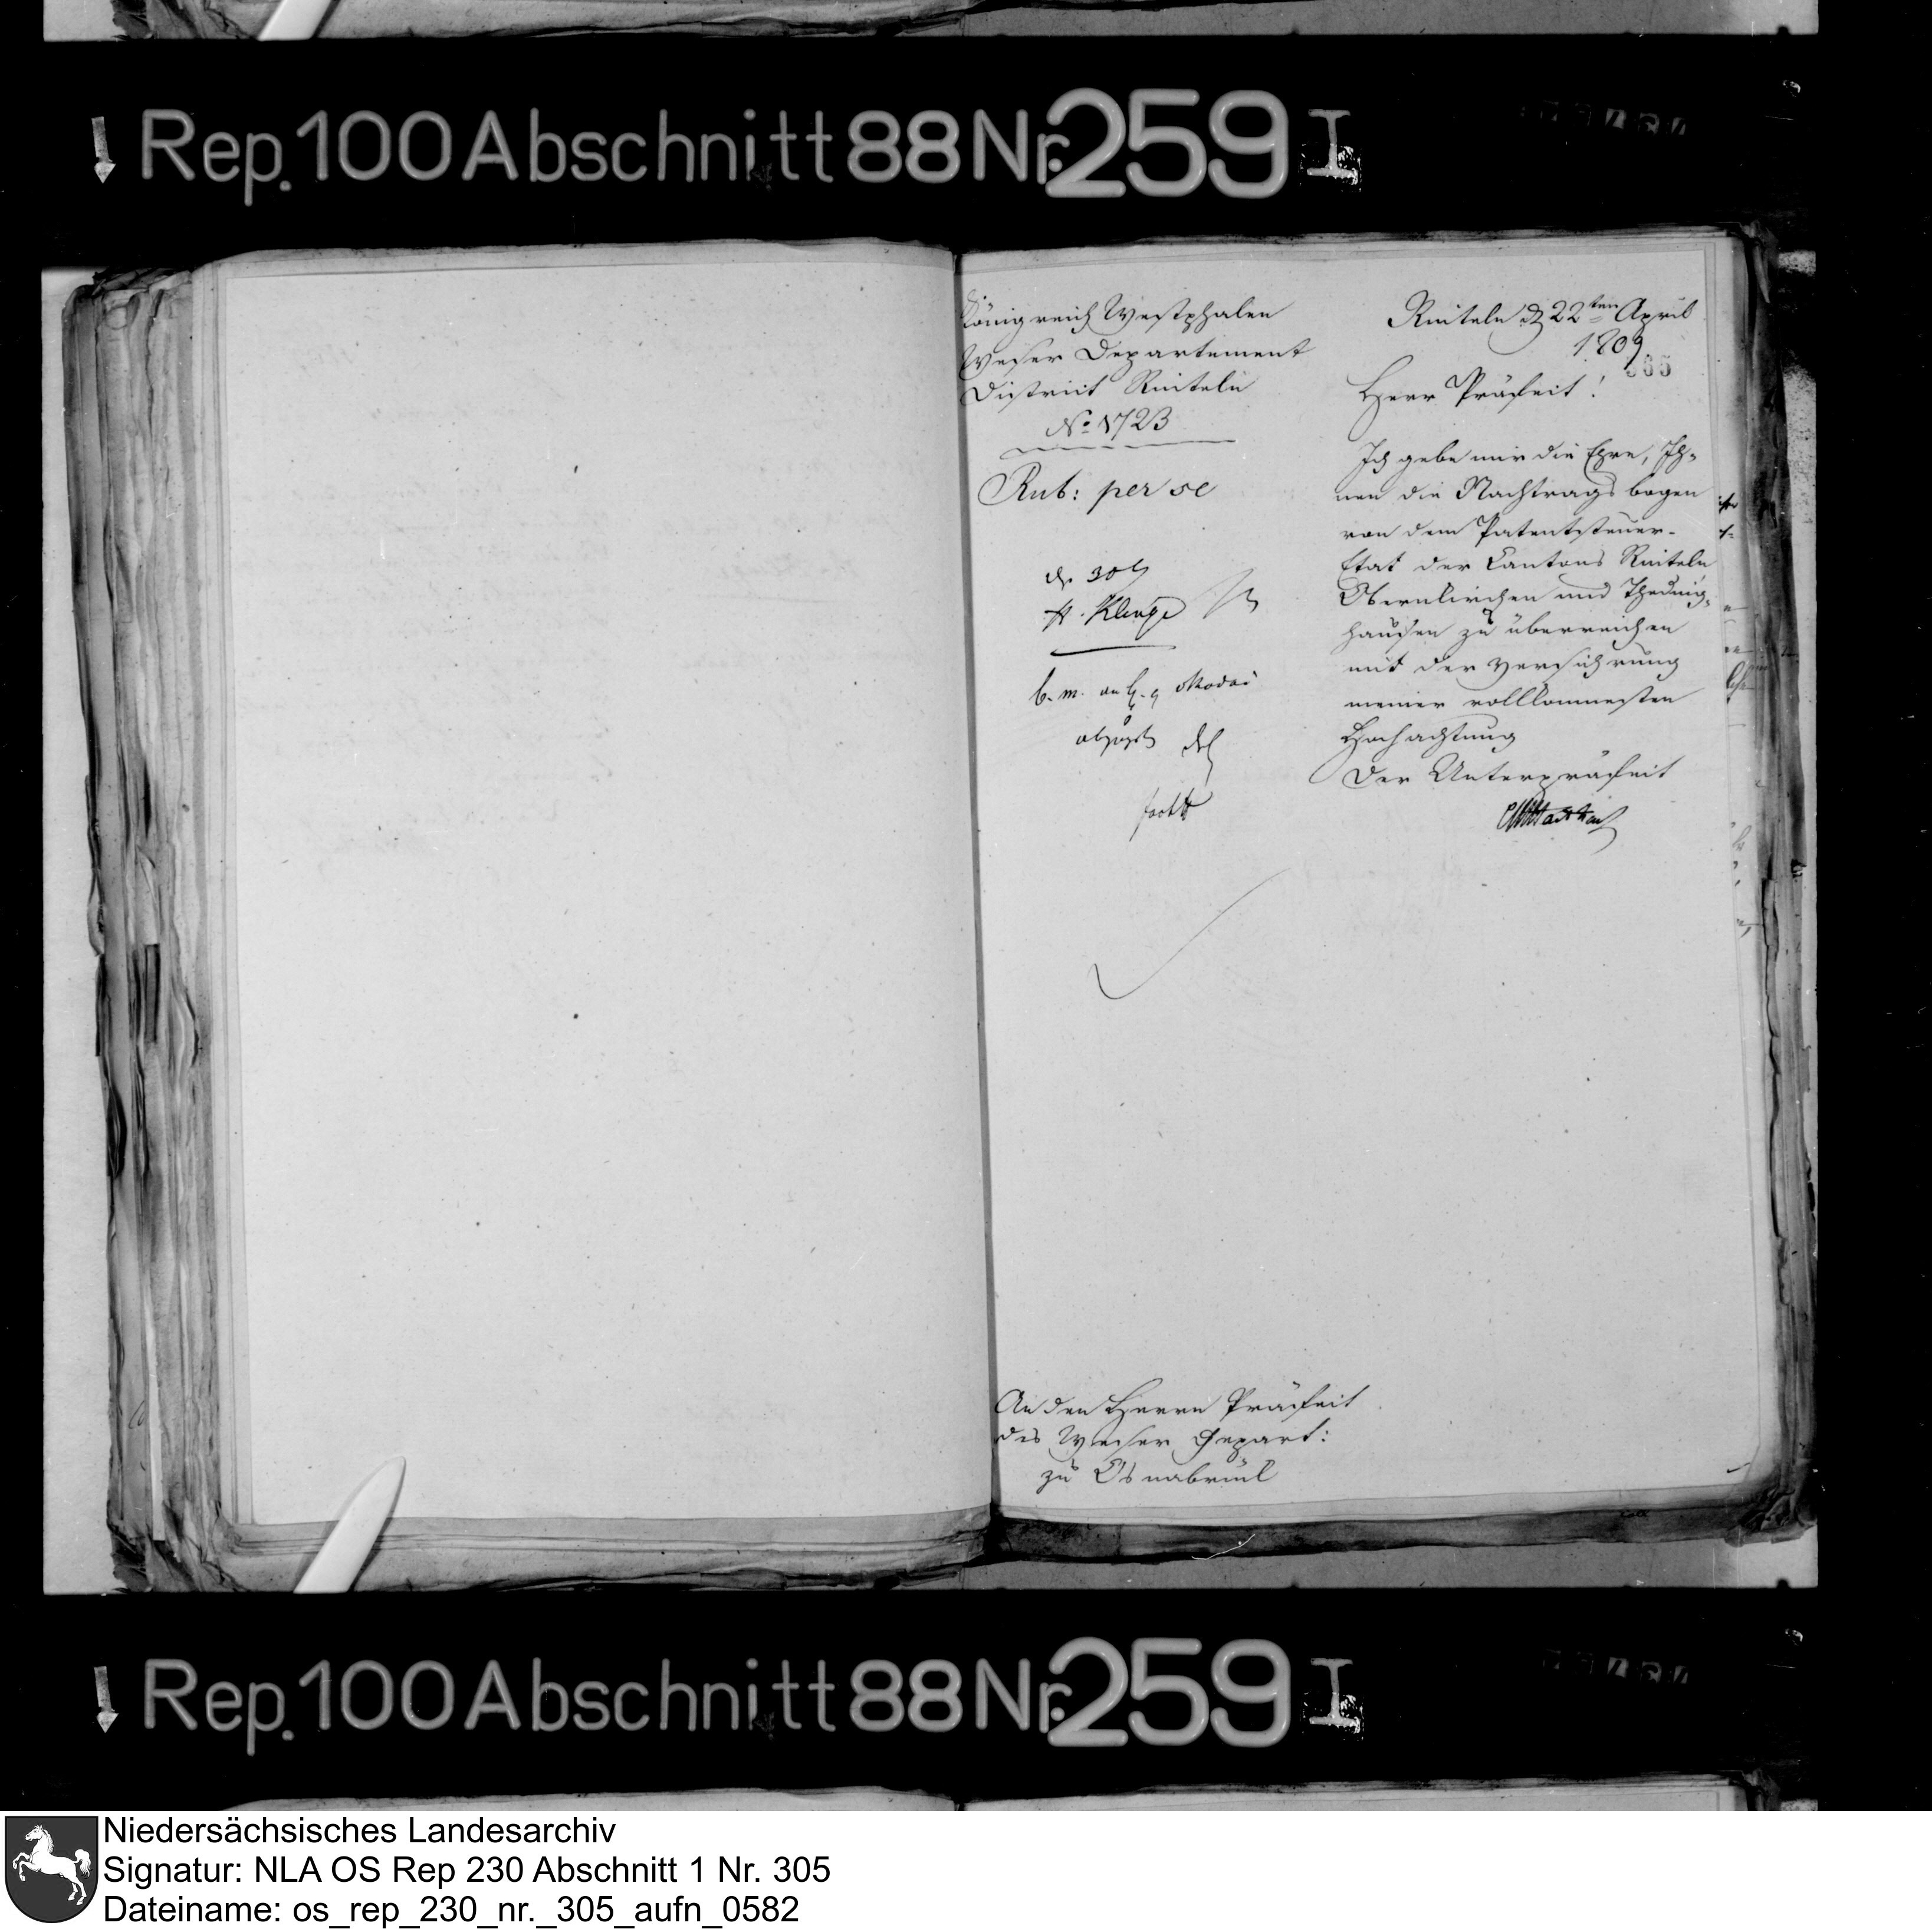 Rep. 100 Abschnitt 88 Nr. 259 I
Königreich Westphalen
Weser Departement
District Rinteln
No. 1723
Rub: per se
H. Klenze
b. m.
Rinteln d 22ten April
1809
365
Herr Präfect!
Ich gebe mir die Ehre, Ih-
nen die Nachtrags bogen
von dem Patentsteuer-
Etat der Cantons Rinteln
Obernkirchen und Theding-
hausen zu überreichen
mit der Versichrung
meiner vollkommesten
Hochachtung
Der Unterpräfect
An den Herrn Präfect
des Weser Depart:
zu Osnabrück
Rep. 100 Abschnitt 88 Nr. 259 I
Niedersächsisches Landesarchiv
Signatur: NLA OS Rep 230 Abschnitt 1 Nr. 305
Dateiname: os_rep_230_nr._305_aufn_0582